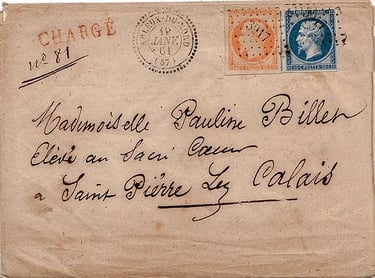 CHARGÉ
nº 81
ARLEUX-DU-NORD
19
JANV.
61
(57)
Mademoiselle Pauline Billet
Elève au Sacré Cœur
à Saint Pierre Lez Calais